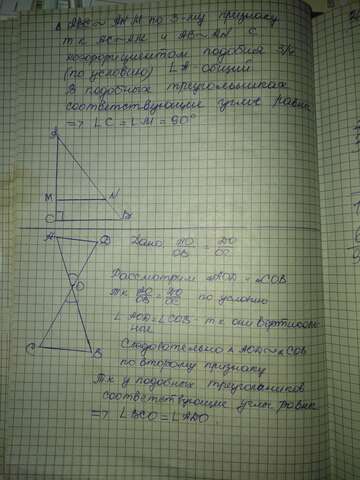 Δ ABC ~ ANM по 3-му признаку
т.к AC ~ AM и AB ~ AN с
коэффициентом подобия
(по условию) ∠A - общий
В подобных треугольниках
соответствующие углы равны
=> ∠C = ∠M = 90°
A
M N
C B
A D Дано AO/OB = DO/OC
Рассмотрим AOD COB
O
т.к AO/OB = DO/OC по условию
∠AOD = ∠COB - т.к они вертикаль
ные
C B
Следовательно Δ AOD ~ COB
по второму признаку
Т.к у подобных треугольников
соответствующие углы равны
=> ∠BCO = ∠ADO